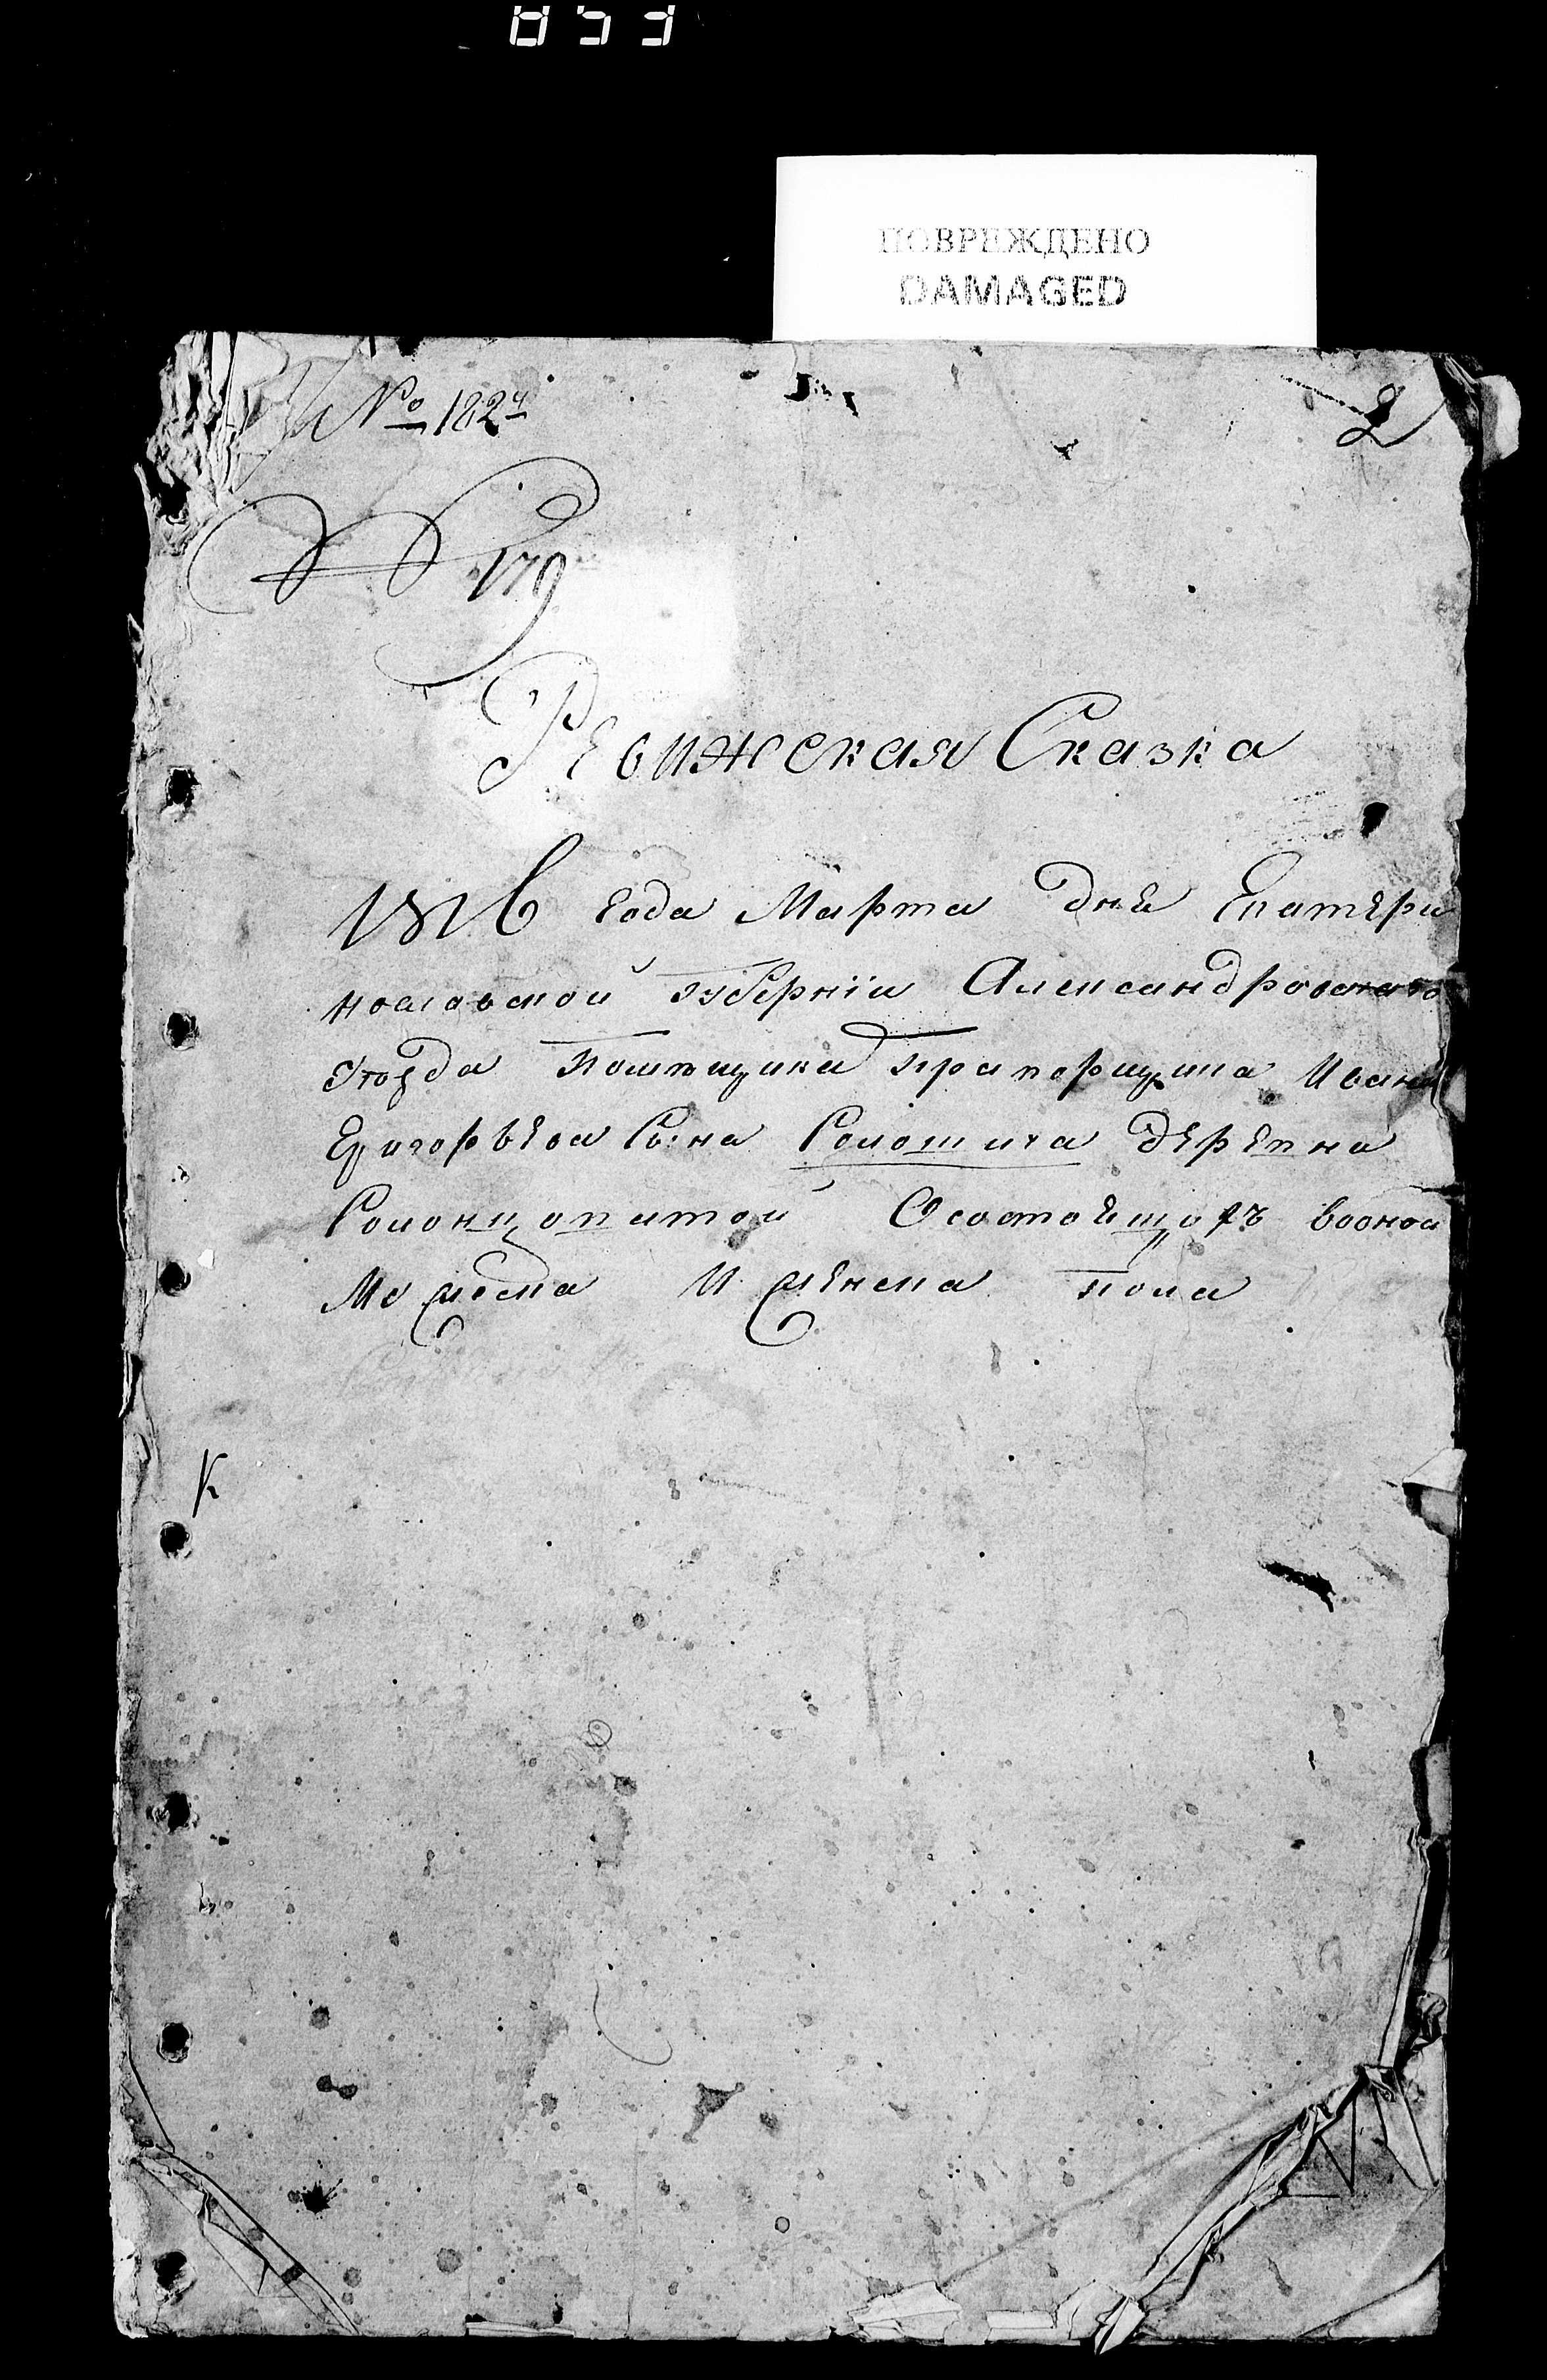 853
ПОВРЕЖДЕНО
DAMAGED
№ 1824
2
№ 179
Ревижская Сказка
1816 года Марта дня Екатери
нославской губернiи Александровскаго
уезда помѣщика прапорщика Ивана
Григорьева Сына деревна
Осостоещихъ воонои
Мужеска И женска пола
К